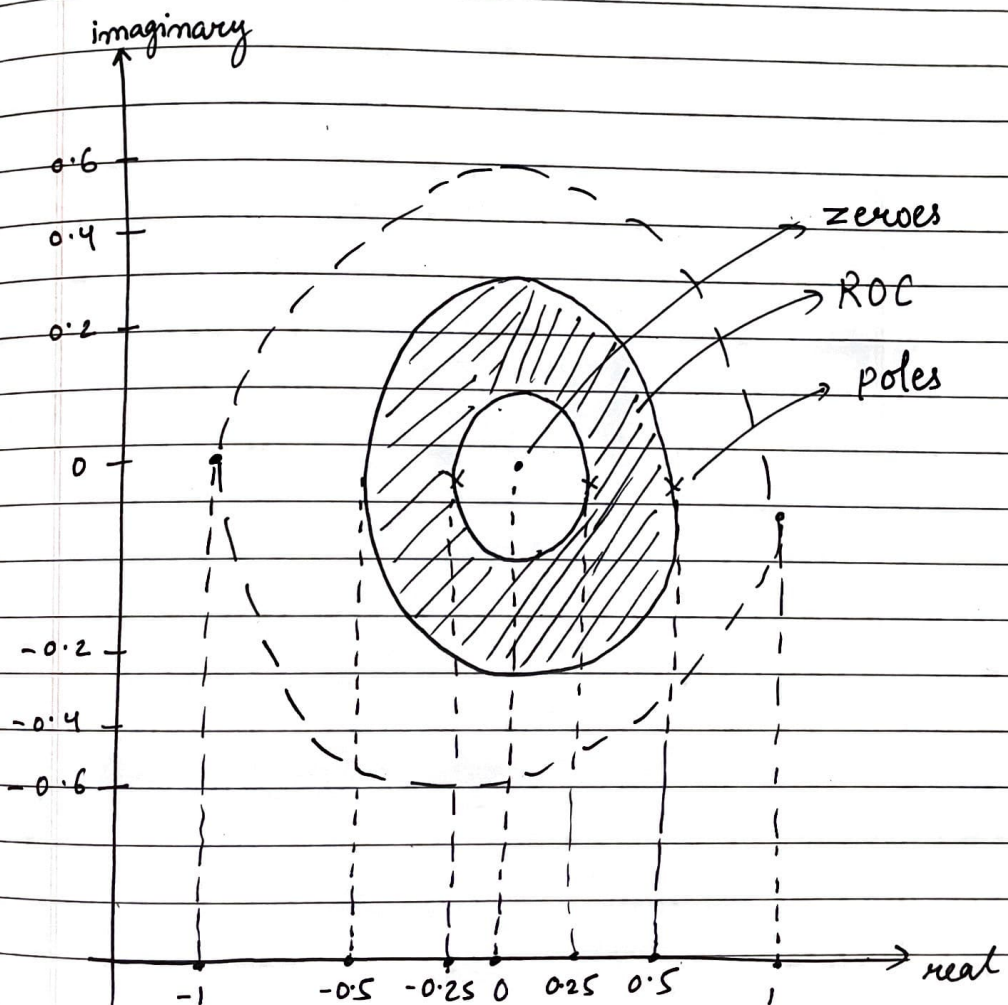 imaginary
0.6
0.4
0.2
0
-0.2
-0.4
-0.6
zeroes
ROC
poles
-1 -0.5 -0.25 0 0.25 0.5 1
real